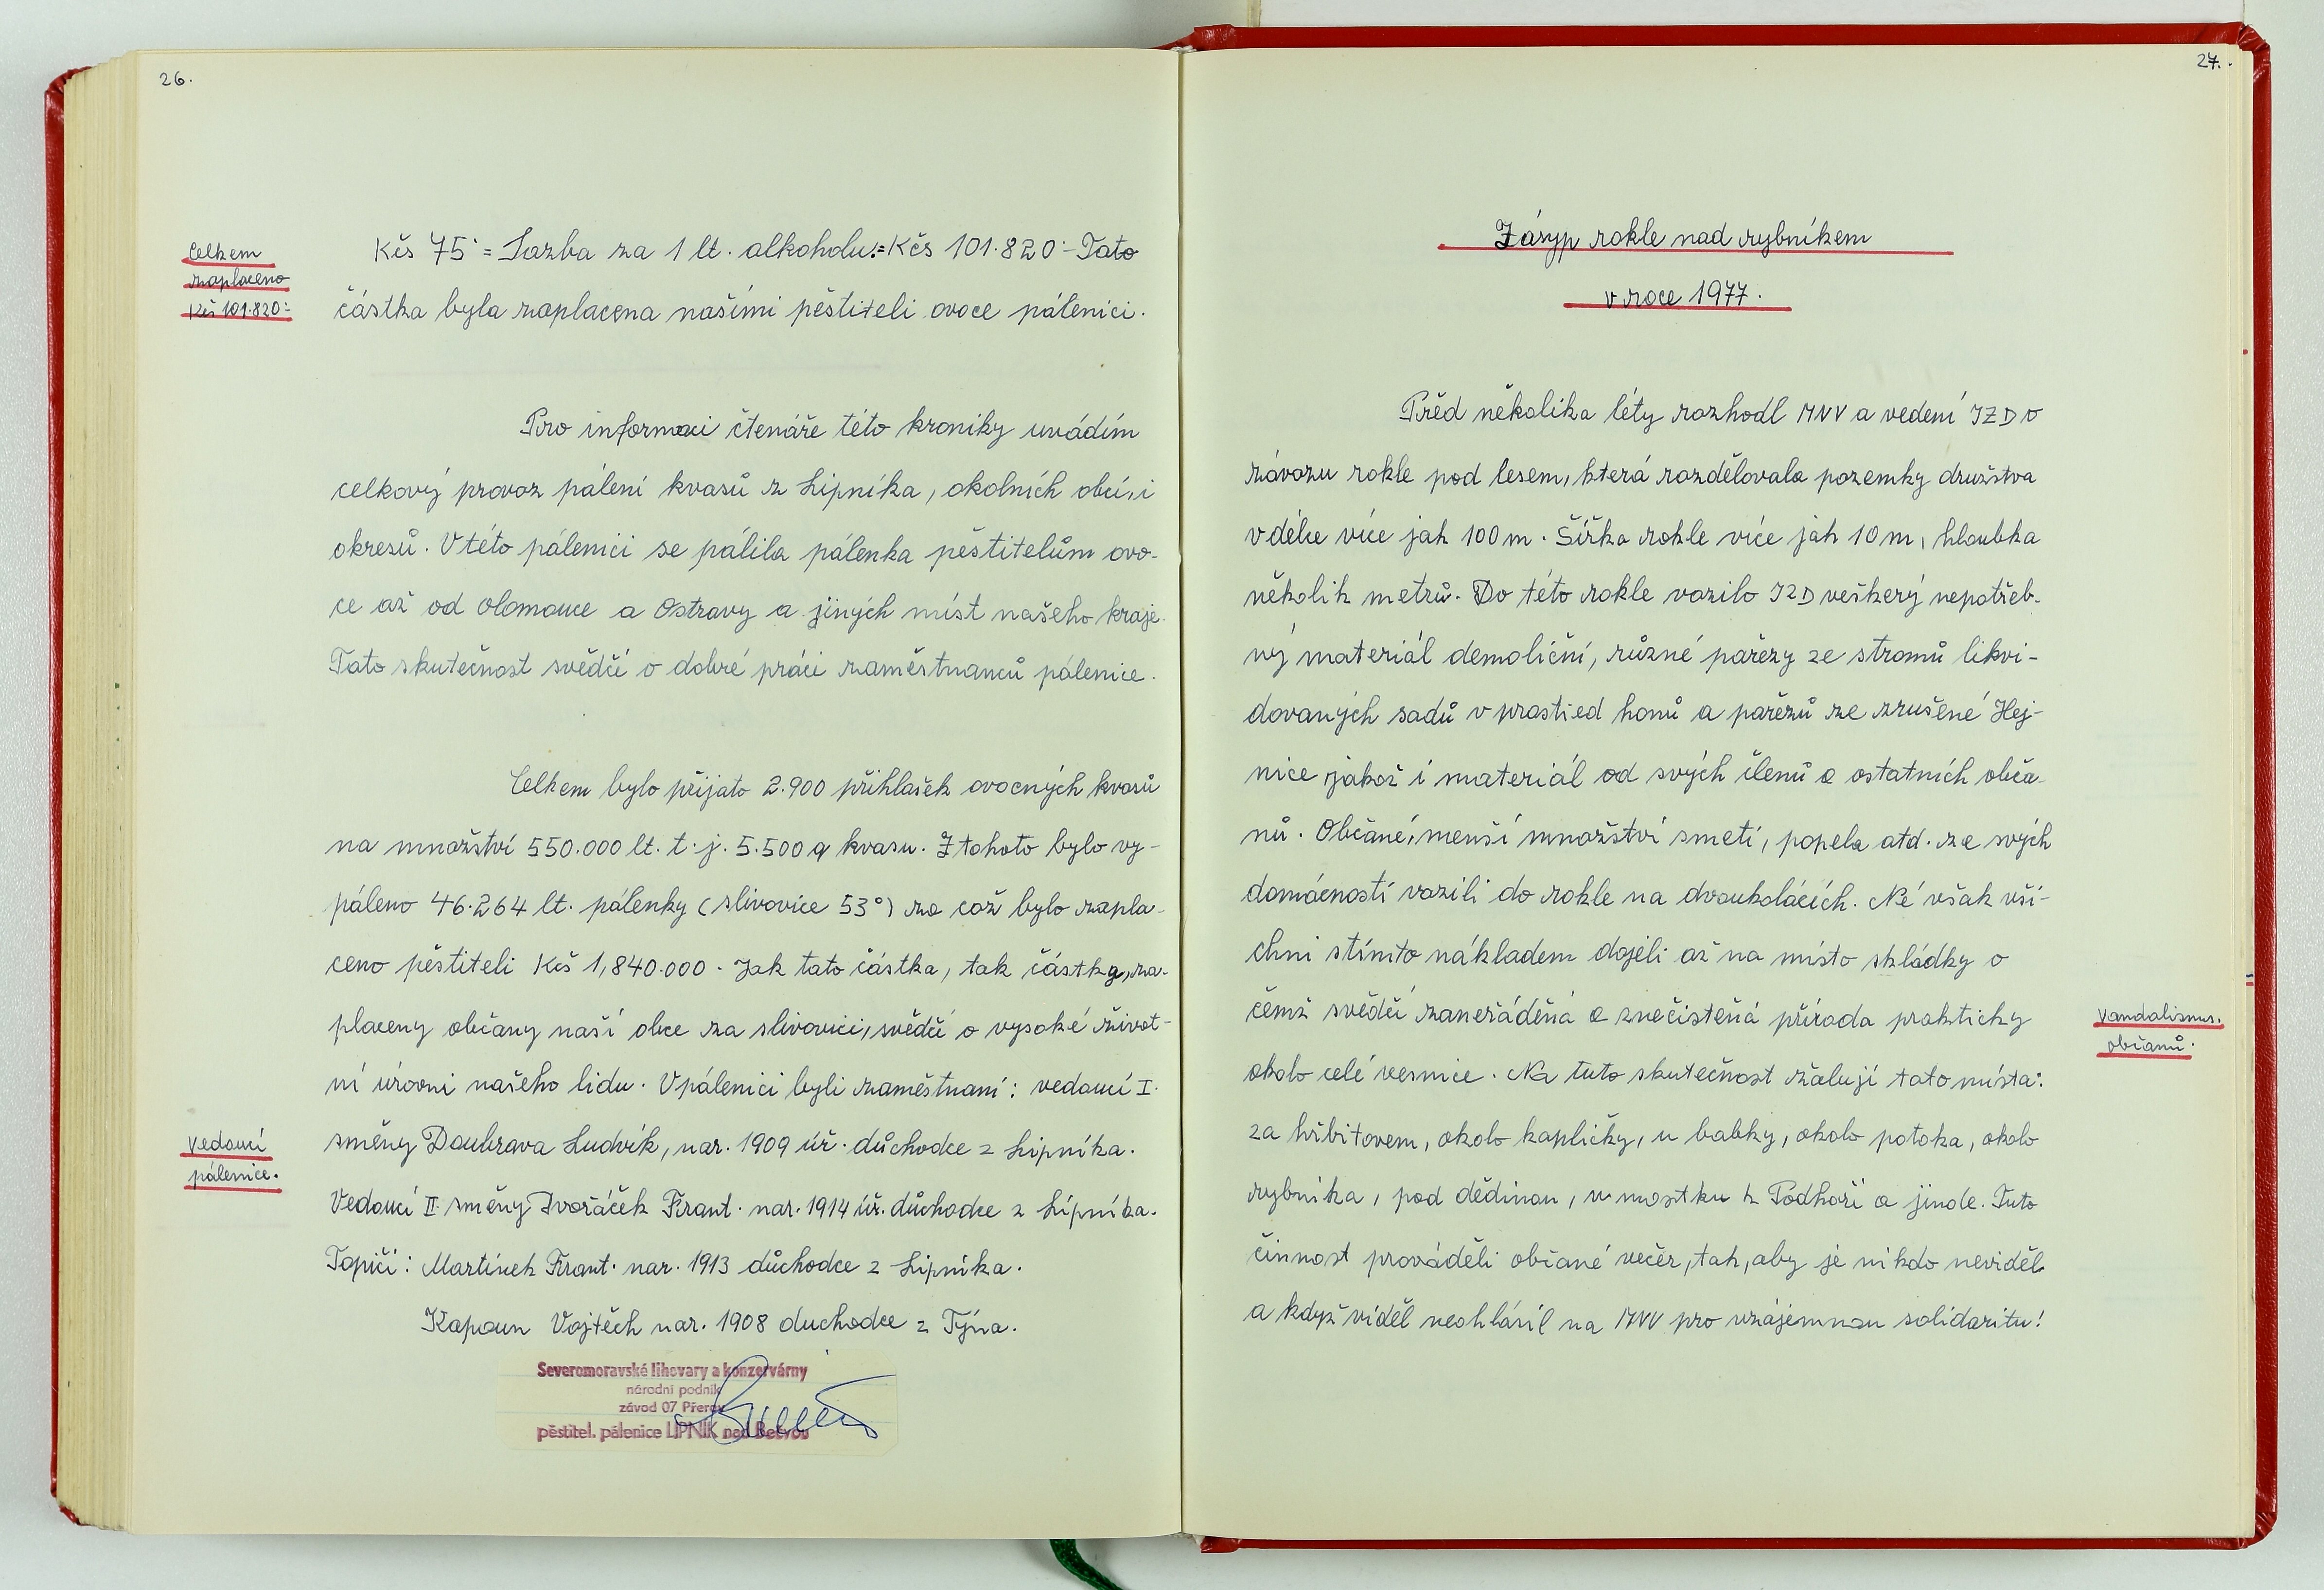 26.
Celkem
zaplaceno
Kčs 101.820:-
Kčs 75·= Sazba za 1 lt. alkoholu:=Kčs 101.820:- Tato
částka byla zaplacena našími pěstiteli ovoce pálenici.
Pro informaci čtenáře této kroniky uvádím
celkový provoz pálení kvasů z Lipníka, okolních obcí, i
okresů. V této pálenici se pálila pálenka pěstitelům ovo-
ce až od Olomouce a Ostravy a jiných míst našeho kraje.
Tato skutečnost svědčí o dobré práci zaměstnanců pálenice.
Celkem bylo přijato 2.900 přihlašek ovocných kvasů
na množství 550.000 lt. t.j. 5.500 q kvasu. Z tohoto bylo vy-
páleno 46.264 lt. pálenky (slivovice 53°) za což bylo zapla-
ceno pěstiteli Kčs 1,840.000. Jak tato částka, tak částky, za-
placeny občany naší obce za slivovici, svědčí o vysoké život-
ní úrovni našeho lidu. V pálenici byli zaměstnaní: vedoucí I.
vedoucí
pálenice.
směny Doubrava Ludvík, nar. 1909 úř. důchodce z Lipníka.
Vedoucí II. směny Dvořáček Frant. nar. 1914 úř. důchodce z Lipníka.
Topiči: Martínek Frant. nar. 1913 důchodce z Lipníka.
Kapoun Vojtěch nar. 1908 duchodce z Týna.
Severomoravské lihovary a konzervárny
národní podnik
závod 07 Přerov
pěstitel. pálenice LIPNÍK nad Bečvou
27.
Zásyp rokle nad rybníkem
v roce 1977.
Přěd několika léty rozhodl MNV a vedení JZD o
závozu rokle pod lesem, která rozdělovala pozemky družstva
v délce více jak 100 m. Šířka rokle více jak 10 m, hloubka
několik metrů. Do této rokle vozilo JZD veškerý nepotřeb-
ný materiál demoliční, různé pařezy ze stromů likvi-
dovaných sadů v prostřed honů a pařezů ze zrušené Hej-
nice jakož i materiál od svých členů a ostatních obča-
nů. Občané, menší množství smetí, popela atd. ze svých
domácností vozili do rokle na dvoukolácích. Né však vši-
chni stímto nákladem dojeli až na místo skládky o
čemž svědčí zaneřáděná a znečistěná příroda prakticky
vandalismus.
občanů.
okolo celé vesnice. Na tuto skutečnost žalují tato místa:
za hřbitovem, okolo kapličky, u babky, okolo potoka, okolo
rybníka, pod dědinou, u mostku k Podhoří a jinde. Tuto
činnost prováděli občané večer, tak, aby je nikdo neviděl
a když viděl neohlásil na MNV pro vzájemnou solidaritu!